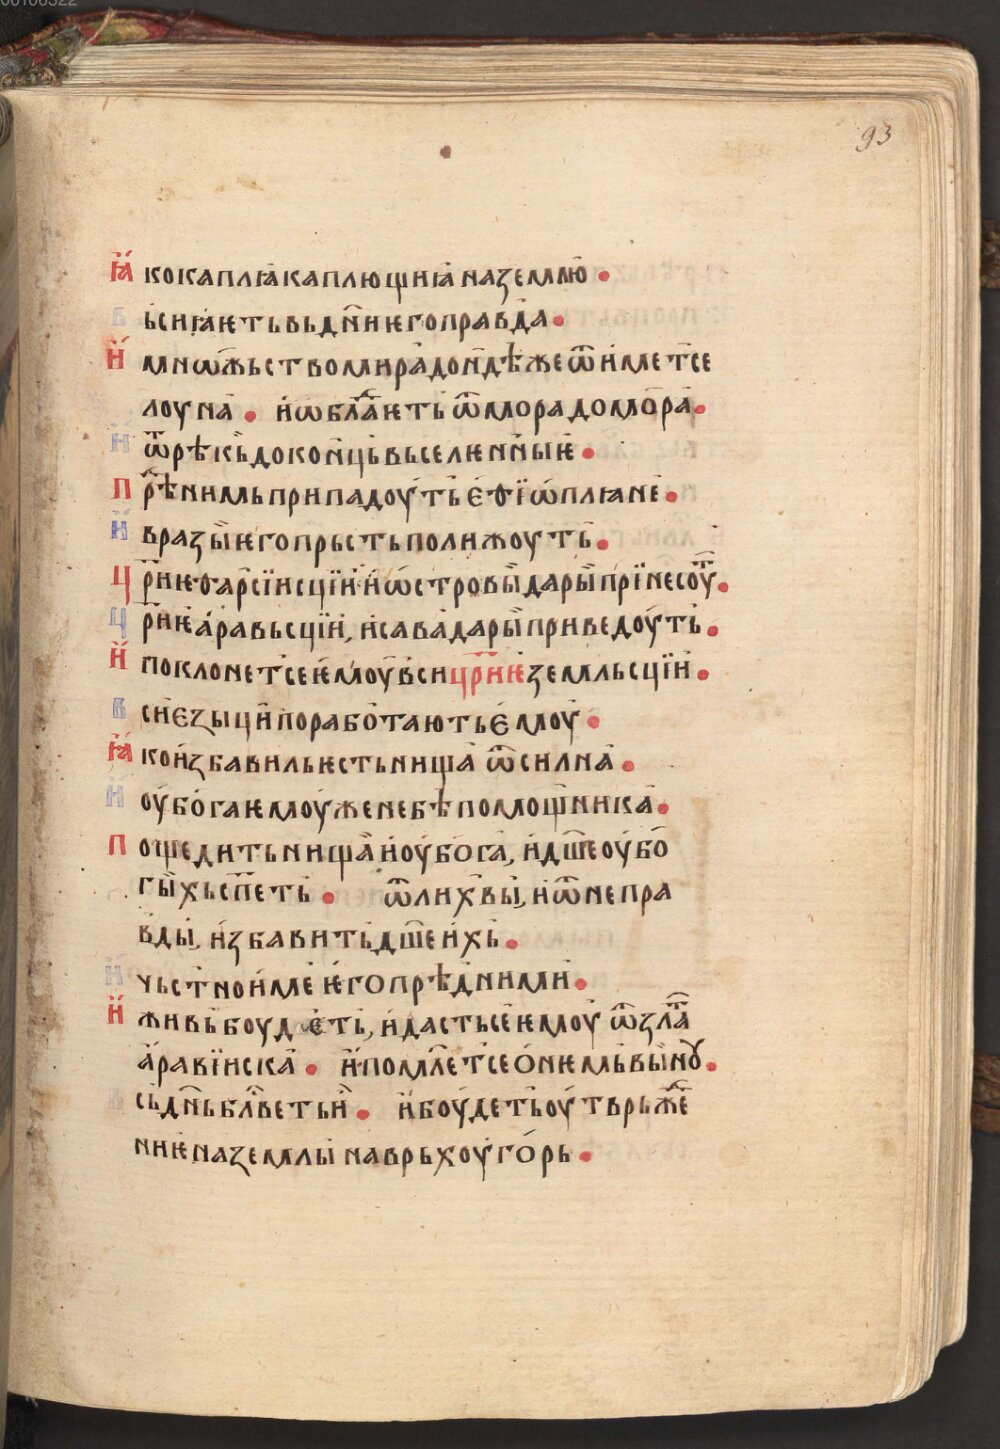 00106322
93
Ꙗ҆ко каплꙗ каплющиꙗ на землю ·
Вьсиꙗѥть вь дн҃и ѥго правда ·
И҆ мнѡжьство мира доньдѣже ѿиметсе
лоуна · и҆ ѡбладаѥть ѿ мора до мора ·
И҆ ѿ рѣкь до коньць вьселѥнныѥ ·
Прѣд нимь припадоуть є҆ѳїѡ҆плꙗне ·
И҆ врази ѥго прьсть полижоуть ·
Цр҃иѥ ѳарсїисции҆ и҆ ѡ҆строви дары принесоут ·
Цр҃иѥ а҆равьсции҆, и҆ сава дары приведоуть ·
И҆ поклонетсе ѥмоу вси цр҃иѥ земльсции҆ ·
Вси є҆зыци поработають є҆моу ·
Ꙗ҆ко и҆збавиль ѥсть нища ѿ силна ·
И҆ оу҆бога ѥмоуже не бѣ помощника ·
Пощедить нища и҆ оу҆бога, и҆ дш҃е оу҆бо
гыхь сп҃сеть · ѿ лихвы, и҆ ѿ непра
вды, и҆збавить дш҃е и҆хь ·
И҆ чьстно и҆ме ѥ҆го прѣд ними ·
И҆ живь боудеть, и҆ дастьсе ѥмоу ѿ злата
а҆равїиска · и҆ помлетсе о҆ ѥмь вы҆ноу ·
Вьсь дн҃ь блв҃еть и҆ · и҆ боудеть оу҆тврьже
ниѥ на землы на врьхоу горь ·